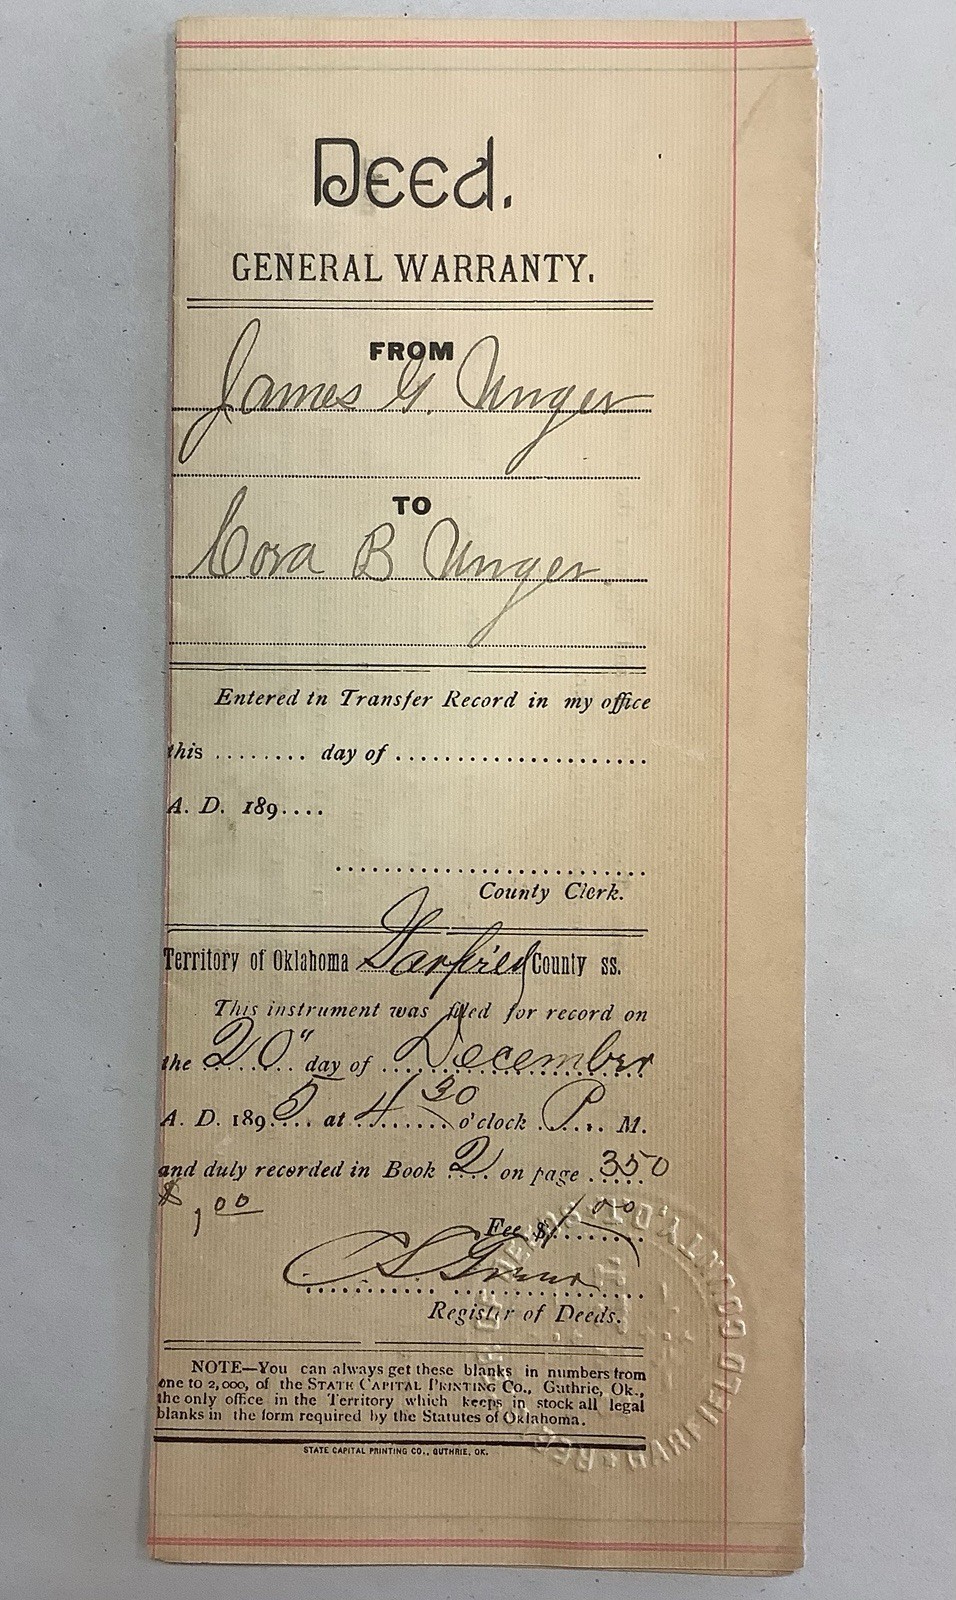 Deed.
GENERAL WARRANTY.
FROM
James G. Unger
TO
Cora B Unger.
Entered in Transfer Record in my office
this ........ day of ......................
A. D. 189....
County Clerk.
Territory of Oklahoma Garfield County ss.
This instrument was filed for record on
the 20" day of December
A. D. 1895 at 4 30 o'clock P. M.
and duly recorded in Book 2 on page 350
$1.00
Fee $1.00
C S
Register of Deeds.
NOTE—You can always get these blanks in numbers from
one to 2,000, of the STATE CAPITAL PRINTING CO., Guthrie, Ok.,
the only office in the Territory which keeps in stock all legal
blanks in the form required by the Statutes of Oklahoma.
STATE CAPITAL PRINTING CO., GUTHRIE, OK.
OF DEEDS
GARFIELD COUNTY, O.T.